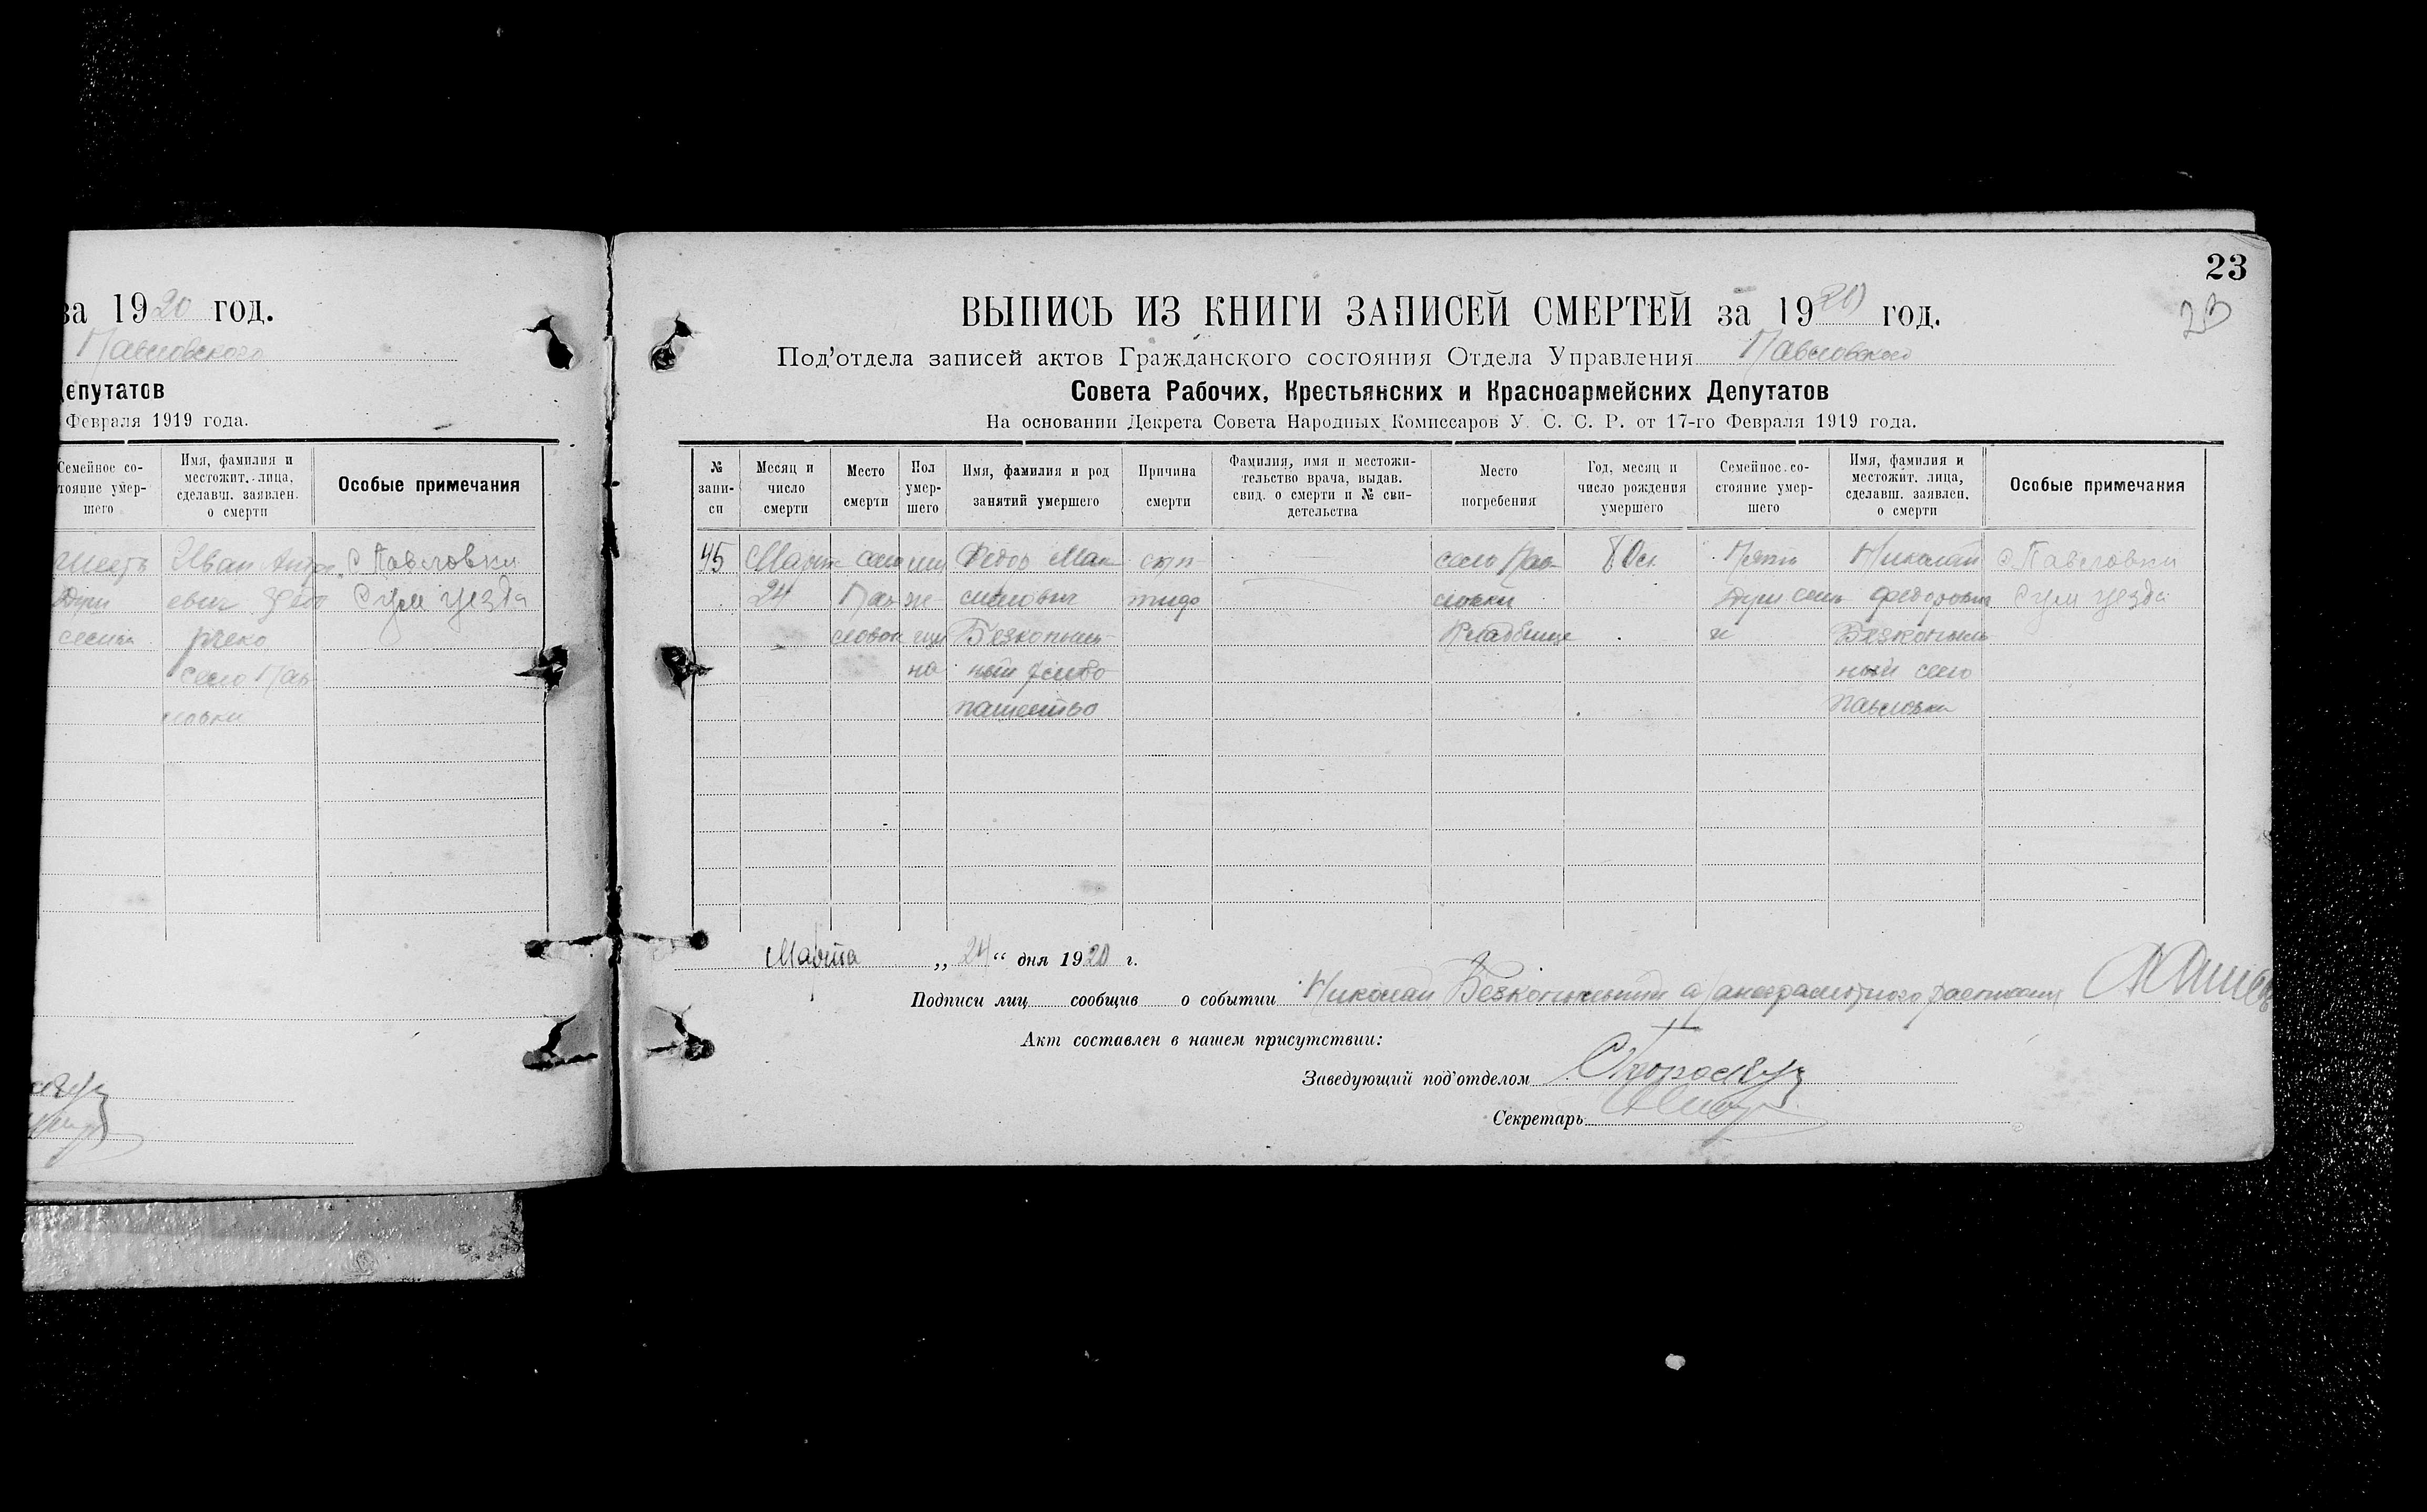 за 1920 год.
Павловского
Депутатов
Февраля 1919 года.
Семейное со-
тояние умер-
шего
Имя, фамилия и
местожит. лица,
сделавш. заявлен.
о смерти
Особые примечания
шесть
Душ
семьи
Иван Андре
евич
село Пав
ловки
с Павловки
Сум уезда
23
23
ВЫПИСЬ ИЗ КНИГИ ЗАПИСЕЙ СМЕРТЕЙ за 1920 год.
Под’отдела записей актов Гражданского состояния Отдела Управления Павловского
Совета Рабочих, Крестьянских и Красноармейских Депутатов
На основании Декрета Совета Народных Комиссаров У. С. С. Р. от 17-го Февраля 1919 года.
№
запи-
си
Месяц и
число
смерти
Место
смерти
Пол
умер-
шего
Имя, фамилия и род
занятий умершего
Причина
смерти
Фамилия, имя и местожи-
тельство врача, выдав.
свид. о смерти и № сви-
детельства
Место
погребения
Год, месяц и
число рождения
умершего
Семейное со-
стояние умер-
шего
Имя, фамилия и
местожит. лица,
сделавш. заявлен.
о смерти
Особые примечания
45
Март
24
село
Пав
ловок
Федор Мак
симович
Безкопыль
ный хлебо
пашество
сып
тифо
село Пав
ловки
Кладбище
Пять
Душ семь
и
Николай
Федорович
Безкопыль
ный село
Павловки
с. Павловки
Сум уезда
Марта „ 24 “ дня 1920 г.
Подписи лиц сообщив о событии Николай Безкопыльный а за неграмотного расписался
Акт составлен в нашем присутствии:
Заведующий под’отделом
Секретарь